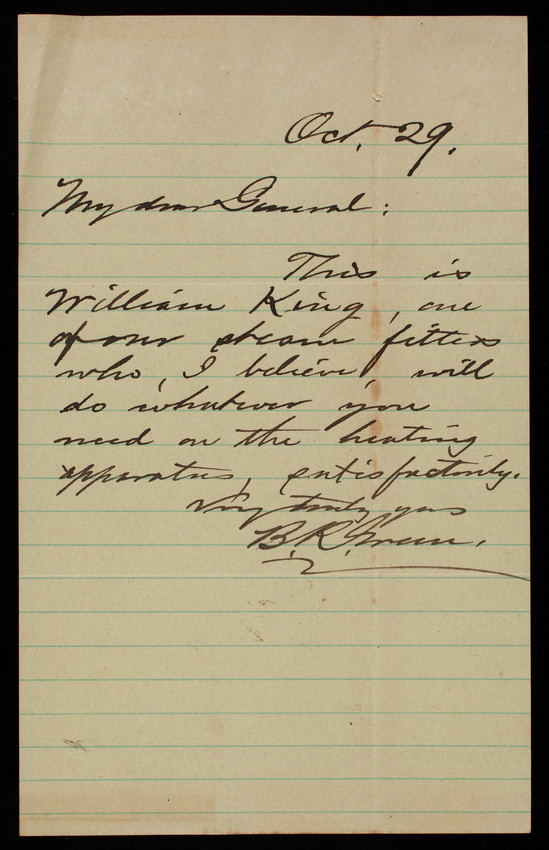 Oct. 29.
My dear General:
This is
William King, one
of our steam fitters
who, I believe, will
do whatever you
need on the heating
apparatus, satisfactorily.
Very truly yours
B. K. Green.